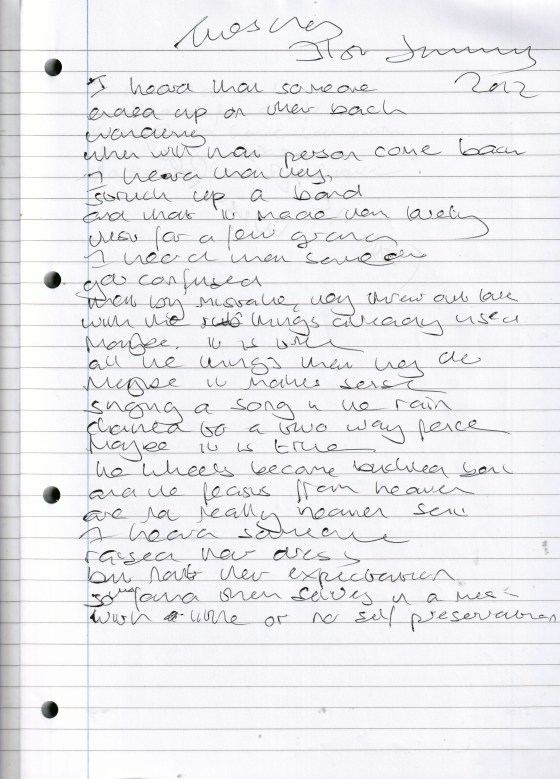 31st January
2012
I heard that someone
ended up on their back
wondering
when will that person come back
I heard that they
struck up a band
and that it made them lovely
just for a few grand
I heard that someone
got confused
that by mistake, they threw out
with the things already used
Maybe it is
all the things that they do
Maybe it makes sense
singing a song in the rain
chained to a two way fence
Maybe it is true
the wheels became buckled
and the from heaven
are not really heaven sent
I heard someone
raised her dress
but not her expectation
some find themselves in a mess
with little or no self preservation